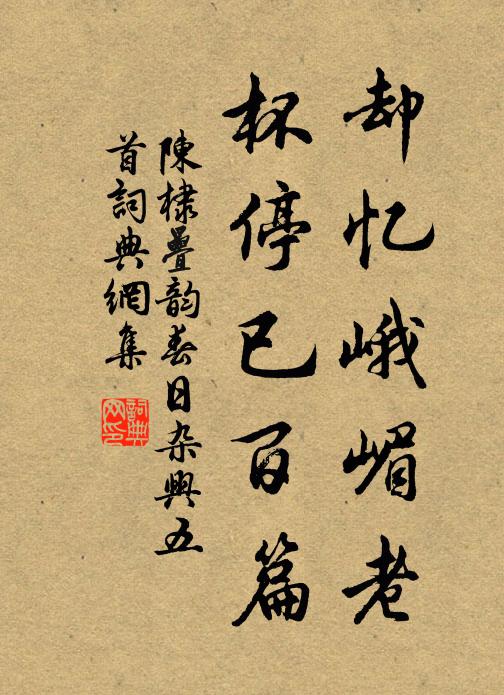 却忆峨嵋老
杯停已百篇
陳棣疊韵春日杂興五
首詞典網集
詞典网印